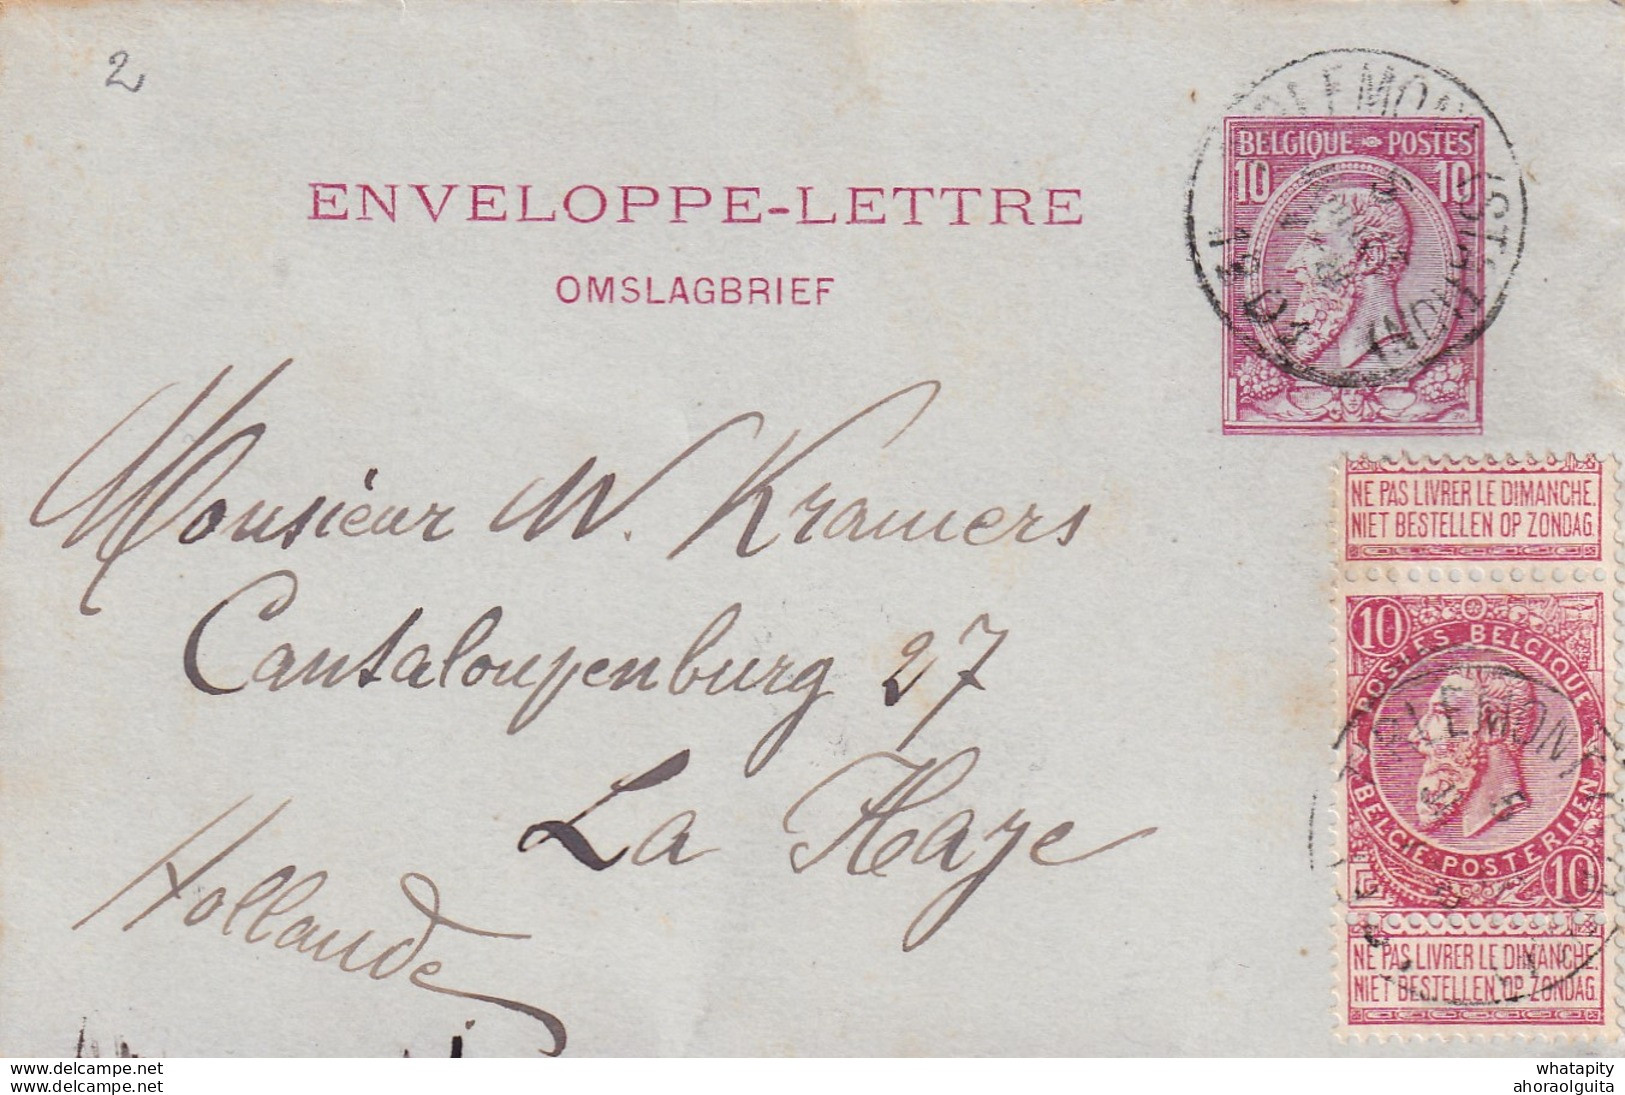 2
BELGIQUE POSTES
10 10
ENVELOPPE-LETTRE
OMSLAGBRIEF
Monsieur W. Kramers
Cantaloupenburg 27
La Haye
Hollande
NE PAS LIVRER LE DIMANCHE.
NIET BESTELLEN OP ZONDAG.
10
POSTES BELGIQUE
TIRLEMONT
BELGIE POSTERIJEN
10
NE PAS LIVRER LE DIMANCHE.
NIET BESTELLEN OP ZONDAG.
whatapity
ahoraolguita
whatapity
ahoraolguita